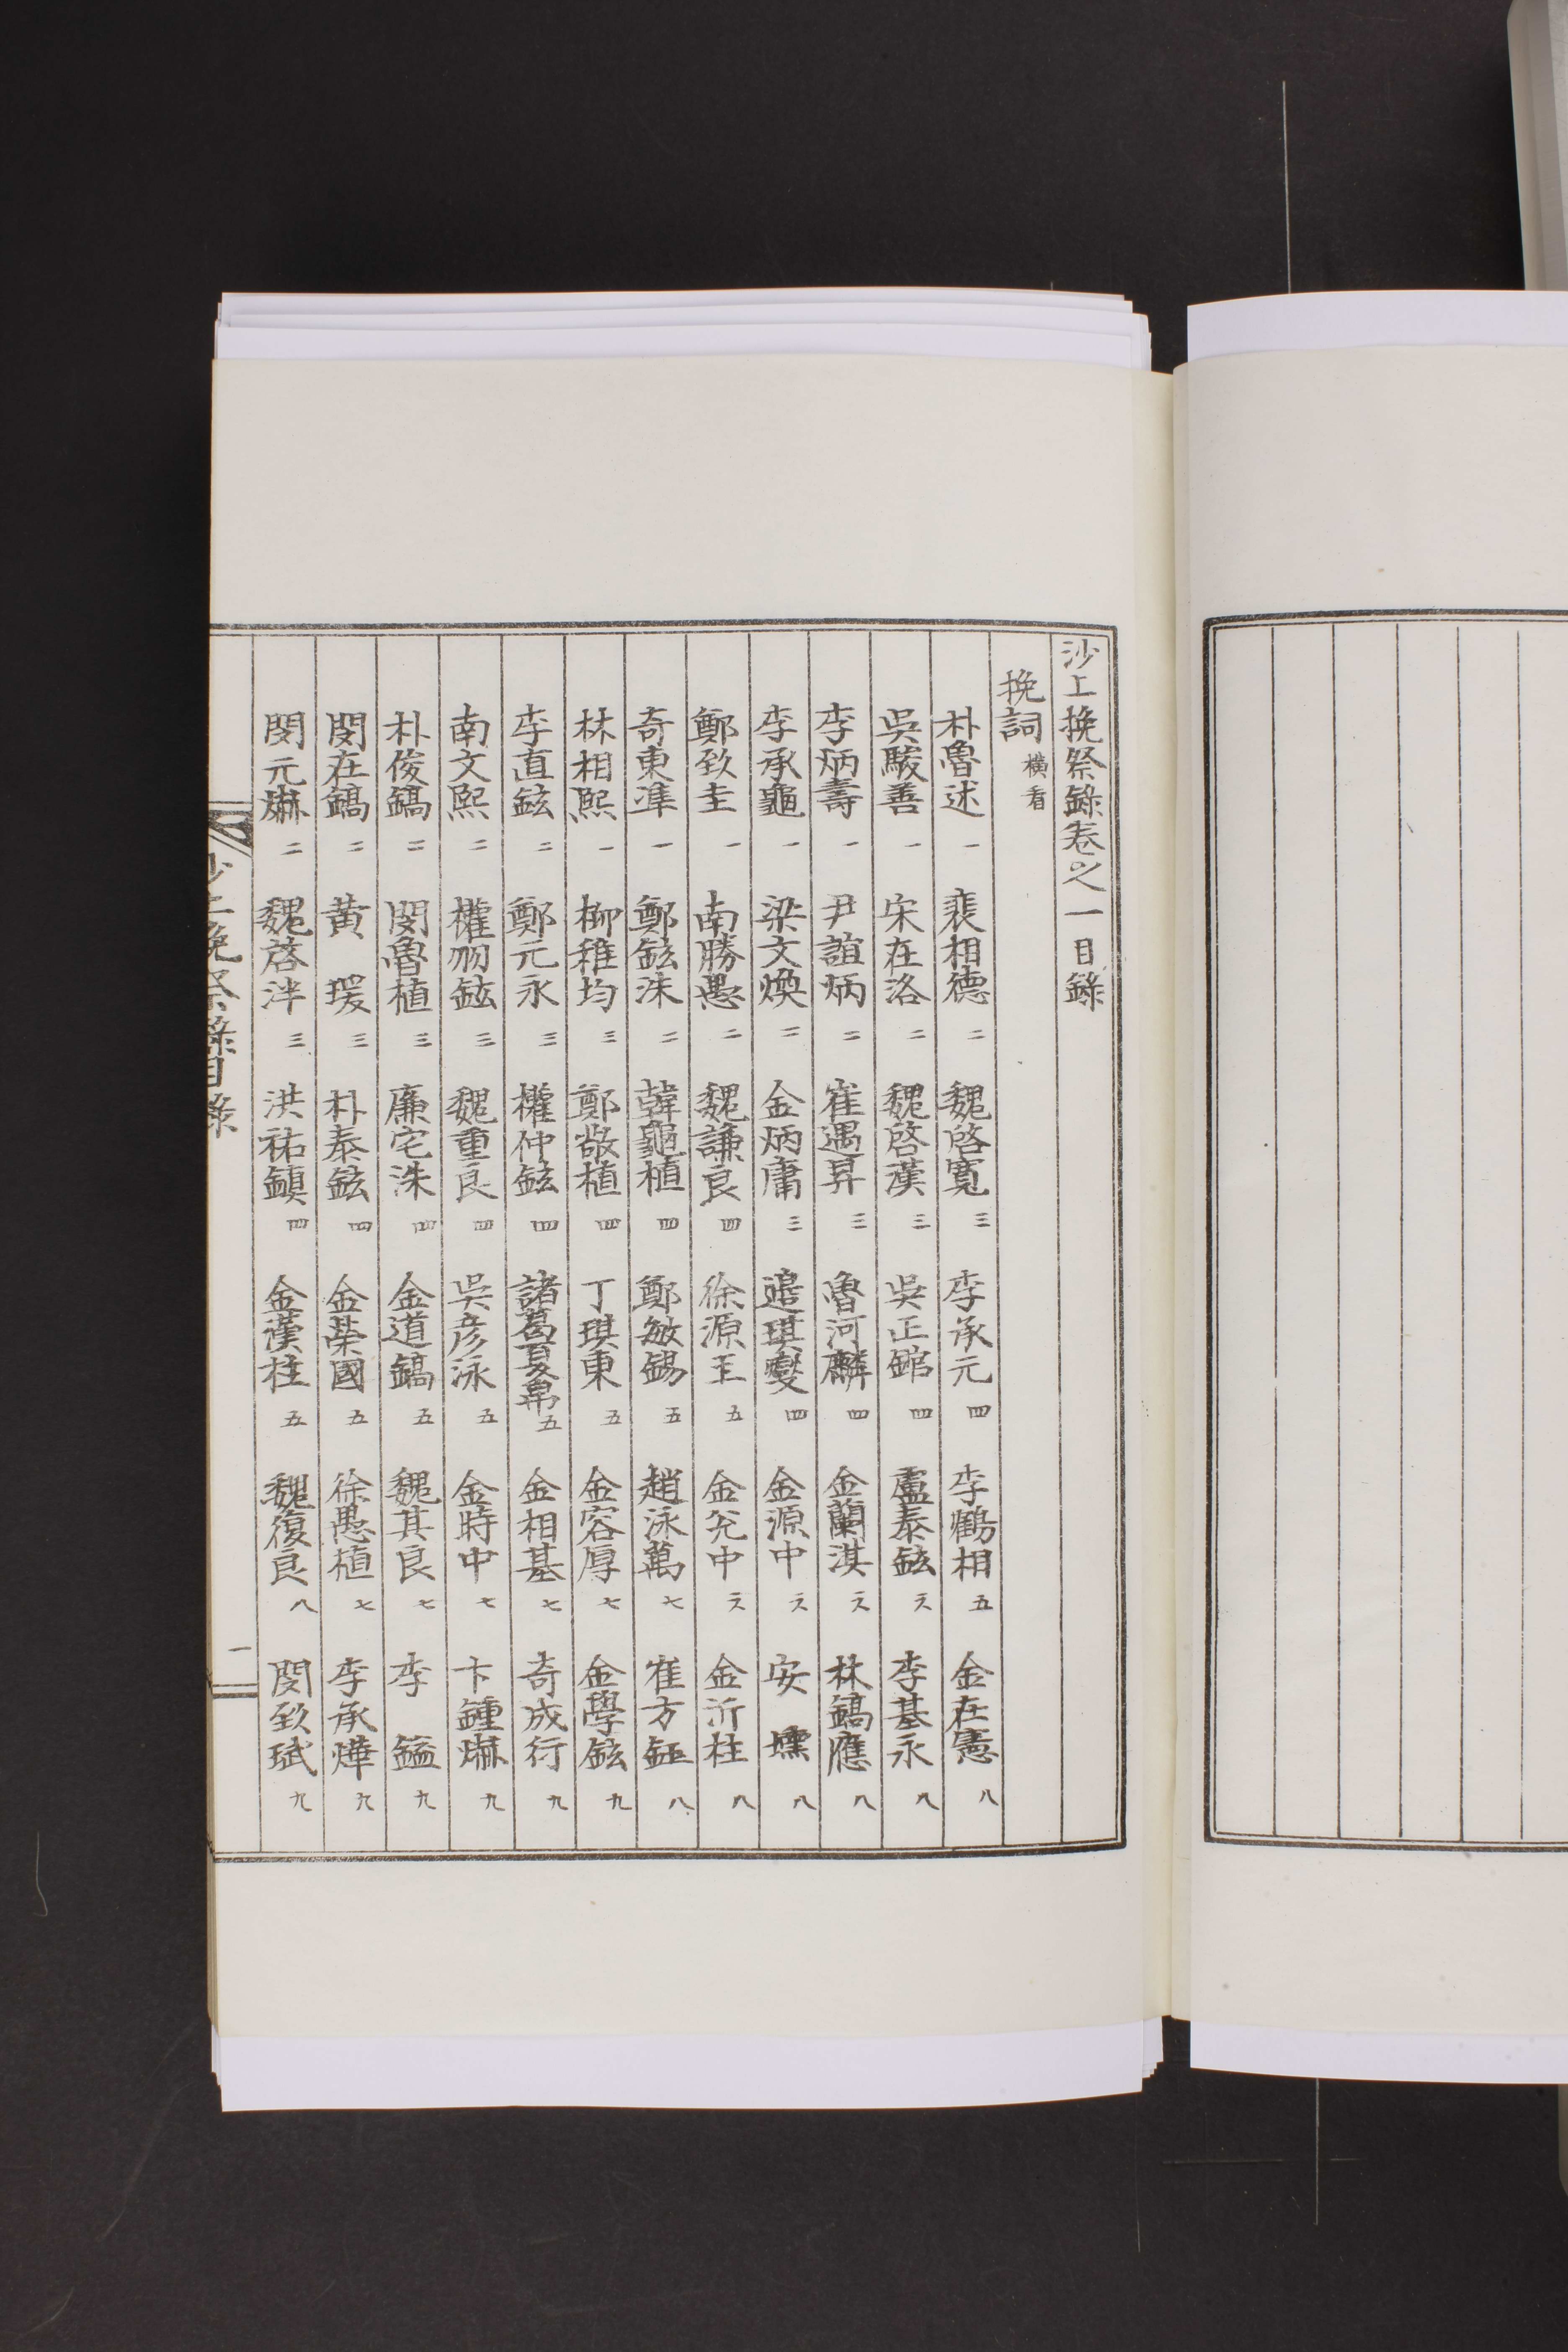 沙上挽祭錄卷之一目錄
挽詞 橫看
朴魯述 一 裵相德 二 魏啓寬 三 李承元 四 李鶴相 五 金在憲 八
吳駿善 一 宋在洛 二 魏啓漢 三 吳正錧 四 盧泰鉉 六 李基永 八
李炳壽 一 尹誼炳 二 崔遇昇 三 魯河麟 四 金蘭淇 六 林鎬應 八
李承龜 一 梁文煥 二 金炳庸 三 邉琪燮 四 金源中 六 安 壎 八
鄭致圭 一 南勝愚 二 魏謙良 四 徐源玉 五 金兊中 六 金沂柱 八
奇東準 一 鄭鉉洙 二 韓龜植 四 鄭敏錫 五 趙泳萬 七 崔方鉦 八
林相熙 一 柳稚均 三 鄭敞植 四 丁琪東 五 金容厚 七 金學鉉 九
李直鉉 二 鄭元永 三 權仲鉉 四 諸葛夏帛 五 金相基 七 奇成衍 九
南文熙 二 權朋鉉 三 魏重良 四 吳彦泳 五 金時中 七 卞鍾爀 九
朴俊鎬 二 閔魯植 三 廉宅洙 四 金道鎬 五 魏其良 七 李 鎰 九
閔在鎬 二 黃 瑗 三 朴泰鉉 四 金榮國 五 徐愚植 七 李承燁 九
閔元爀 二 魏啓泮 三 洪祐鎭 四 金漢柱 五 魏復良 八 閔致珷 九
沙上挽祭錄目錄 一